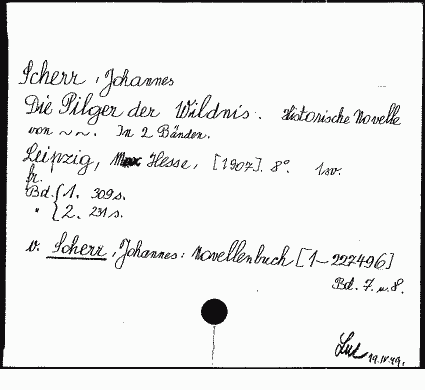 Scherr, Johannes
Die Pilger der Wildnis. Historische Novelle
von ~ ~. In 2 Bänden.
Leipzig, Max Hesse, [1907]. 8°. 1sv.
fr.
Bd. { 1. 309 s.
" { 2. 231 s.
v. Scherr, Johannes: Novellenbuch [1-227496]
Bd. 7. u. 8.
19.IV.49.